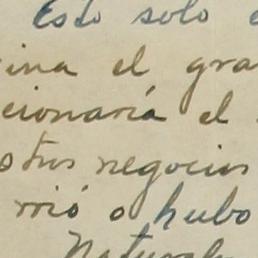 Esto solo e
ina el gra
cionaría el
otros negocios
rrió o hubo
Natural